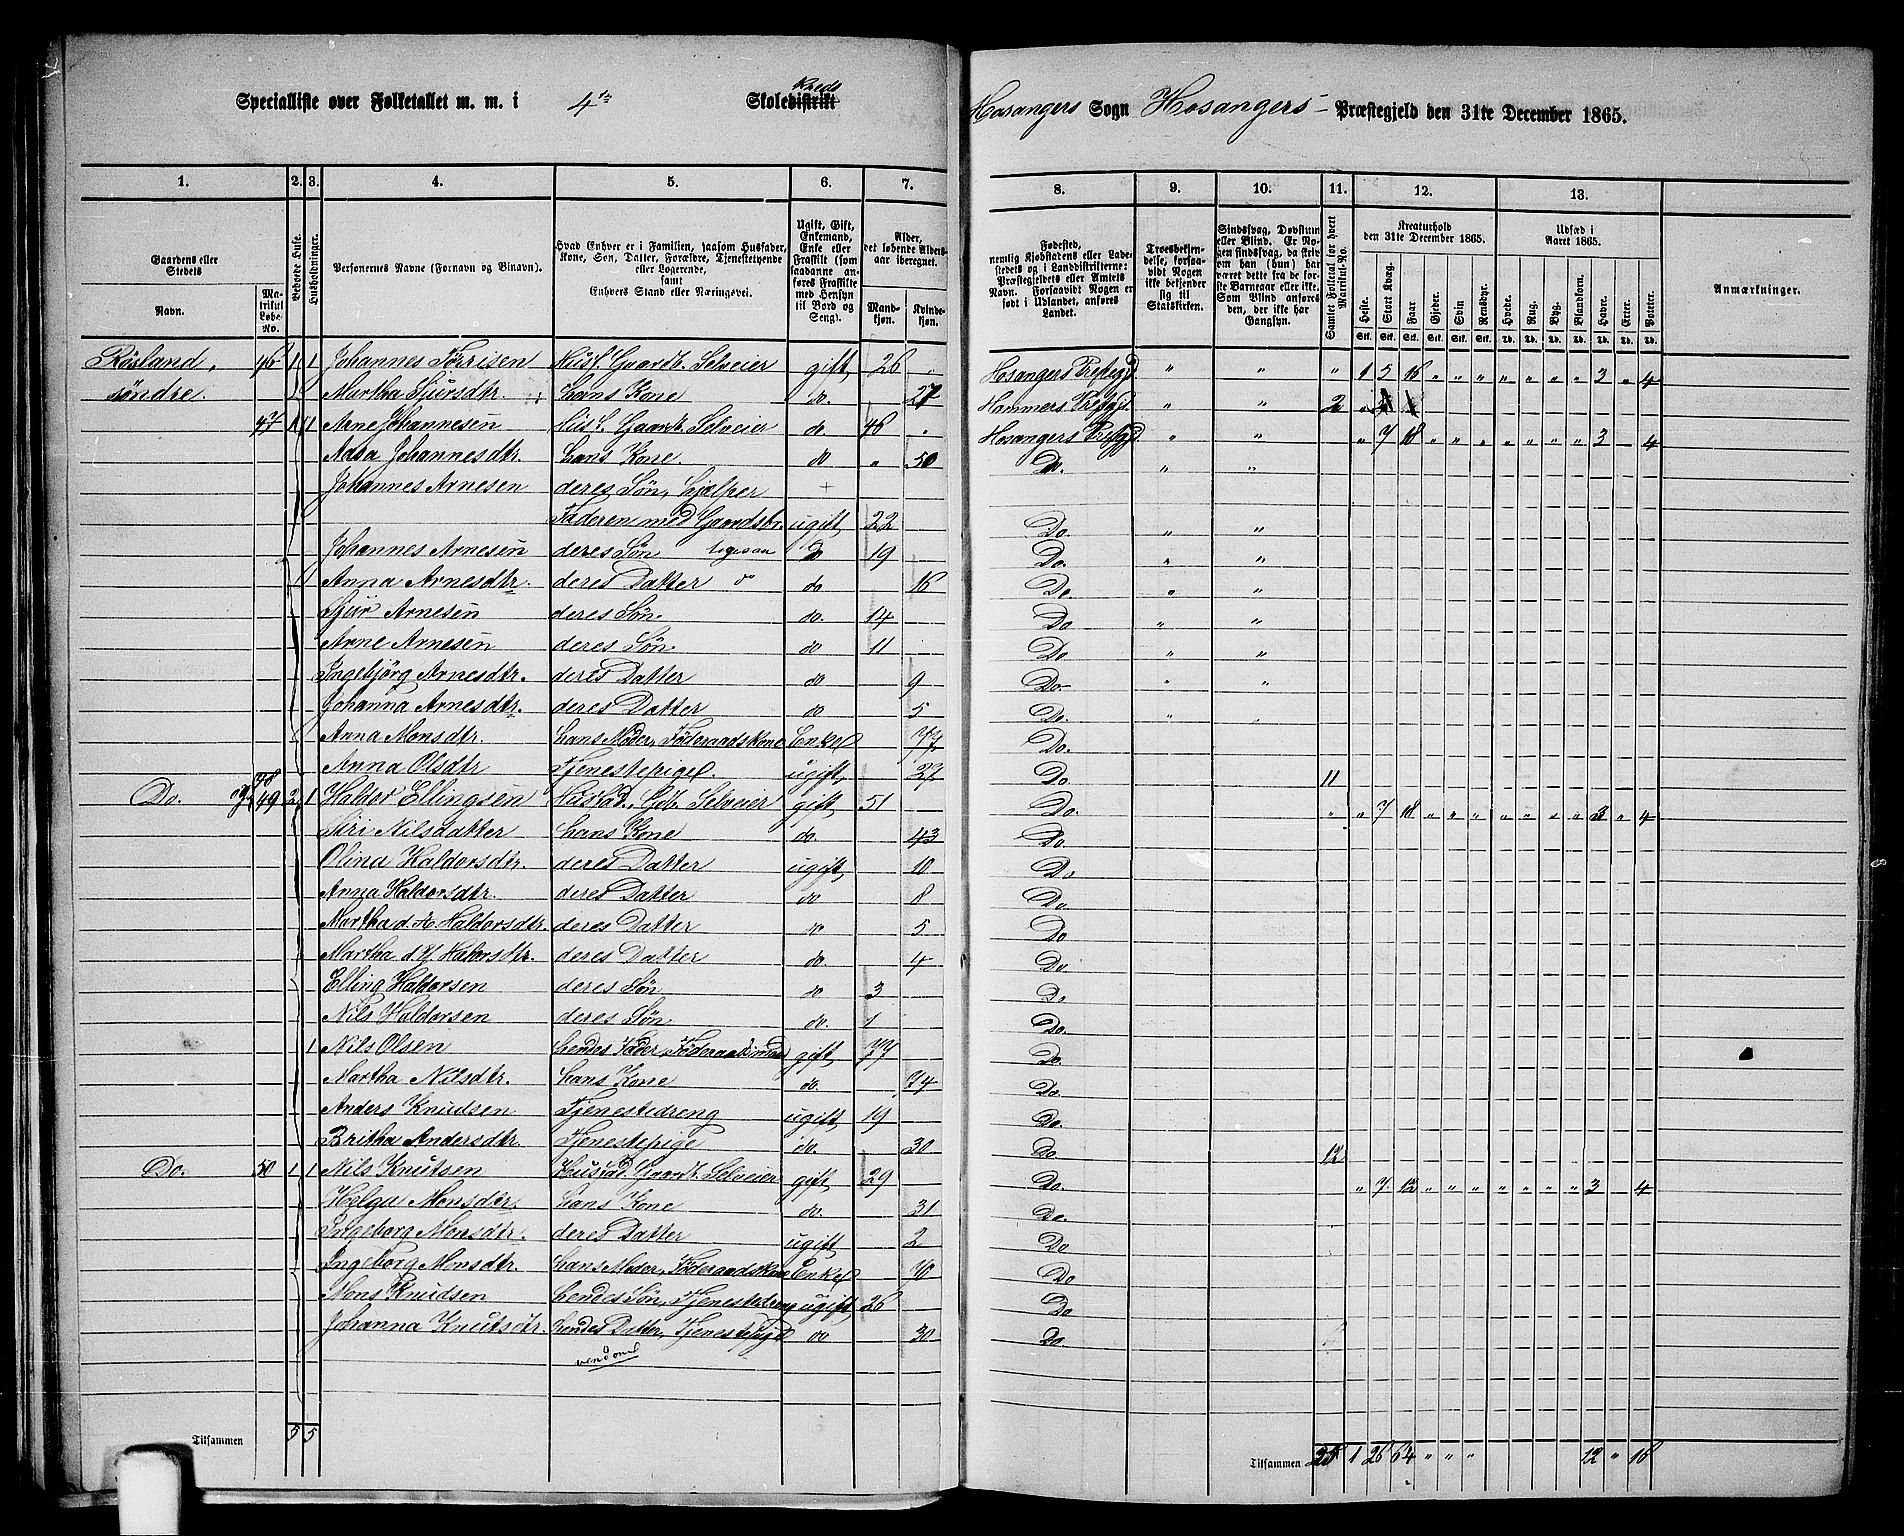 Specialliste over Folketallet m. m. i 4de Skoledistrikt Kreds Hosangers Sogn Hosangers Præstegjeld den 31te December 1865.
1. 2. 3. 4. 5. 6. 7. 8. 9. 10. 11. 12. 13.
Gaardens eller Stedets
Navn.
Matrikul Løbe-No.
Beboede Huse.
Husholdninger.
Personernes Navne (Fornavn og Binavn).
Hvad Enhver er i Familien, saasom Husfader, Kone, Søn, Datter, Forældre, Tjenestetyende eller Logerende, samt Enhvers Stand eller Næringsvei.
Ugift, Gift, Enkemand, Enke eller Fraskilt (som saadanne anføres Fraskilte med Hensyn til Bord og Seng).
Alder, det løbende Aldersaar iberegnet.
Mandkjøn. Kvindekjøn.
Fødested, nemlig Kjøbstadens eller Ladestedets og i Landdistrikterne: Præstegjeldets eller Amtets Navn. Forsaavidt Nogen er født i Udlandet, anføres Landet.
Troesbekjendelse, forsaavidt Nogen ikke bekjender sig til Statskirken.
Sindssvag, Døvstum eller Blind. Er Nogen sindssvag, da skrives om han (hun) har været dette fra de første Barneaar eller ikke. Som Blind anføres den, der ikke har Gangsyn.
Samlet Folketal for hvert Matrikul-No.
Kreaturhold den 31te December 1865.
Heste. Stort Kvæg. Faar. Gjeder. Svin. Rensdyr.
Udsæd i Aaret 1865.
Hvede. Rug. Byg. Blandkorn. Havre. Erter. Poteter.
Anmærkninger.
Røsland 46 1 1 Johannes Torrisen Husf. Gaardb. Selveier gift 26 " Hosangers Prestegjd " " " 1 5 16 " " " " " " " 3 " 4
søndre Martha Sjursdtr. hans Kone do. 27 Hammers " " 2
47 1 1 Arne Johannesen Husf. Gaardb. Selveier do 48 " Hosangers " " " 7 18 " " " " " " " 3 4
Johannesdtr. hans Kone. do " 50 Do. " "
Johannes Arnesen deres Søn, hjelper +
Faderen med Gaardsbr. ugift 22 Do. " "
Johannes Arnesen deres Søn do 19 Do. " "
Anna Arnesdtr. deres Datter do do 16 Do. " "
Sjur Arnesen deres Søn. do. 14 Do " "
Arne Arnesen deres Søn. do 11 Do " "
Ingebjørg Arnesdtr. deres Datter do 9 Do " "
Johanna Arnesdtr. deres Datter do 5 Do. "
Anna Monsdtr. hans Moder, Føderaadskone Enke 77 Do.
Anna Olsdtr Tjenestepige. ugift 27 Do 11
Do. og 48 49 2 1 Haldor Ellingsen Husfad. Gdb. Selveier gift 51 Do. " " 7 18 " " " " " " " 3 " 4
Siri Nilsdatter hans Kone do. 43 Do.
Olina Haldorsdtr. deres Datter ugift 10 Do
Anna Haldorsdtr. deres Datter do 8 Do.
Martha d. Haldorsdtr. deres Datter do 5 Do
Martha d. Y. Haldorsdtr. deres Datter do. 4 Do.
Elling Haldorsen deres Søn do 3 Do
Nils Haldorsen deres Søn do. 1 Do.
1 Nils Olsen hendes Fader, Føderaadsmand gift 77 Do.
Martha Nilsdtr. hans Kone do. 74 Do.
Anders Knudsen Tjenestedreng ugift 19 Do.
Britha Andersdtr. Tjenestepige do. 30 Do 12
Do. 50 1 1 Nils Knutsen Husfad. Gaardb. Selveier gift 29 Do. " 7 12 " " " " " " " 3 4
Helga Monsdtr. hans Kone do. 31 Do.
Ingeborg Monsdtr. deres Datter ugift 2 Do
Ingeborg Monsdtr. hans Moder, Føderaadskone Enke 70 Do
Mons Knudsen hendes Søn, Tjenestedreng ugift 26 Do
Johanna Knutsdtr. hendes Datter, Tjenestepige do 30 Do.
vend om!
Tilsammen 5 5 Tilsammen 25 1 26 64 " " " 12 " 16